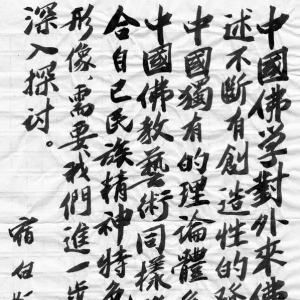 中國佛学對外來佛
述不断有創造性的發
中國獨有的理論體系
中國佛教藝術同樣
合自己民族精神特色
形像,需要我們進一步
深入探讨。
宿白